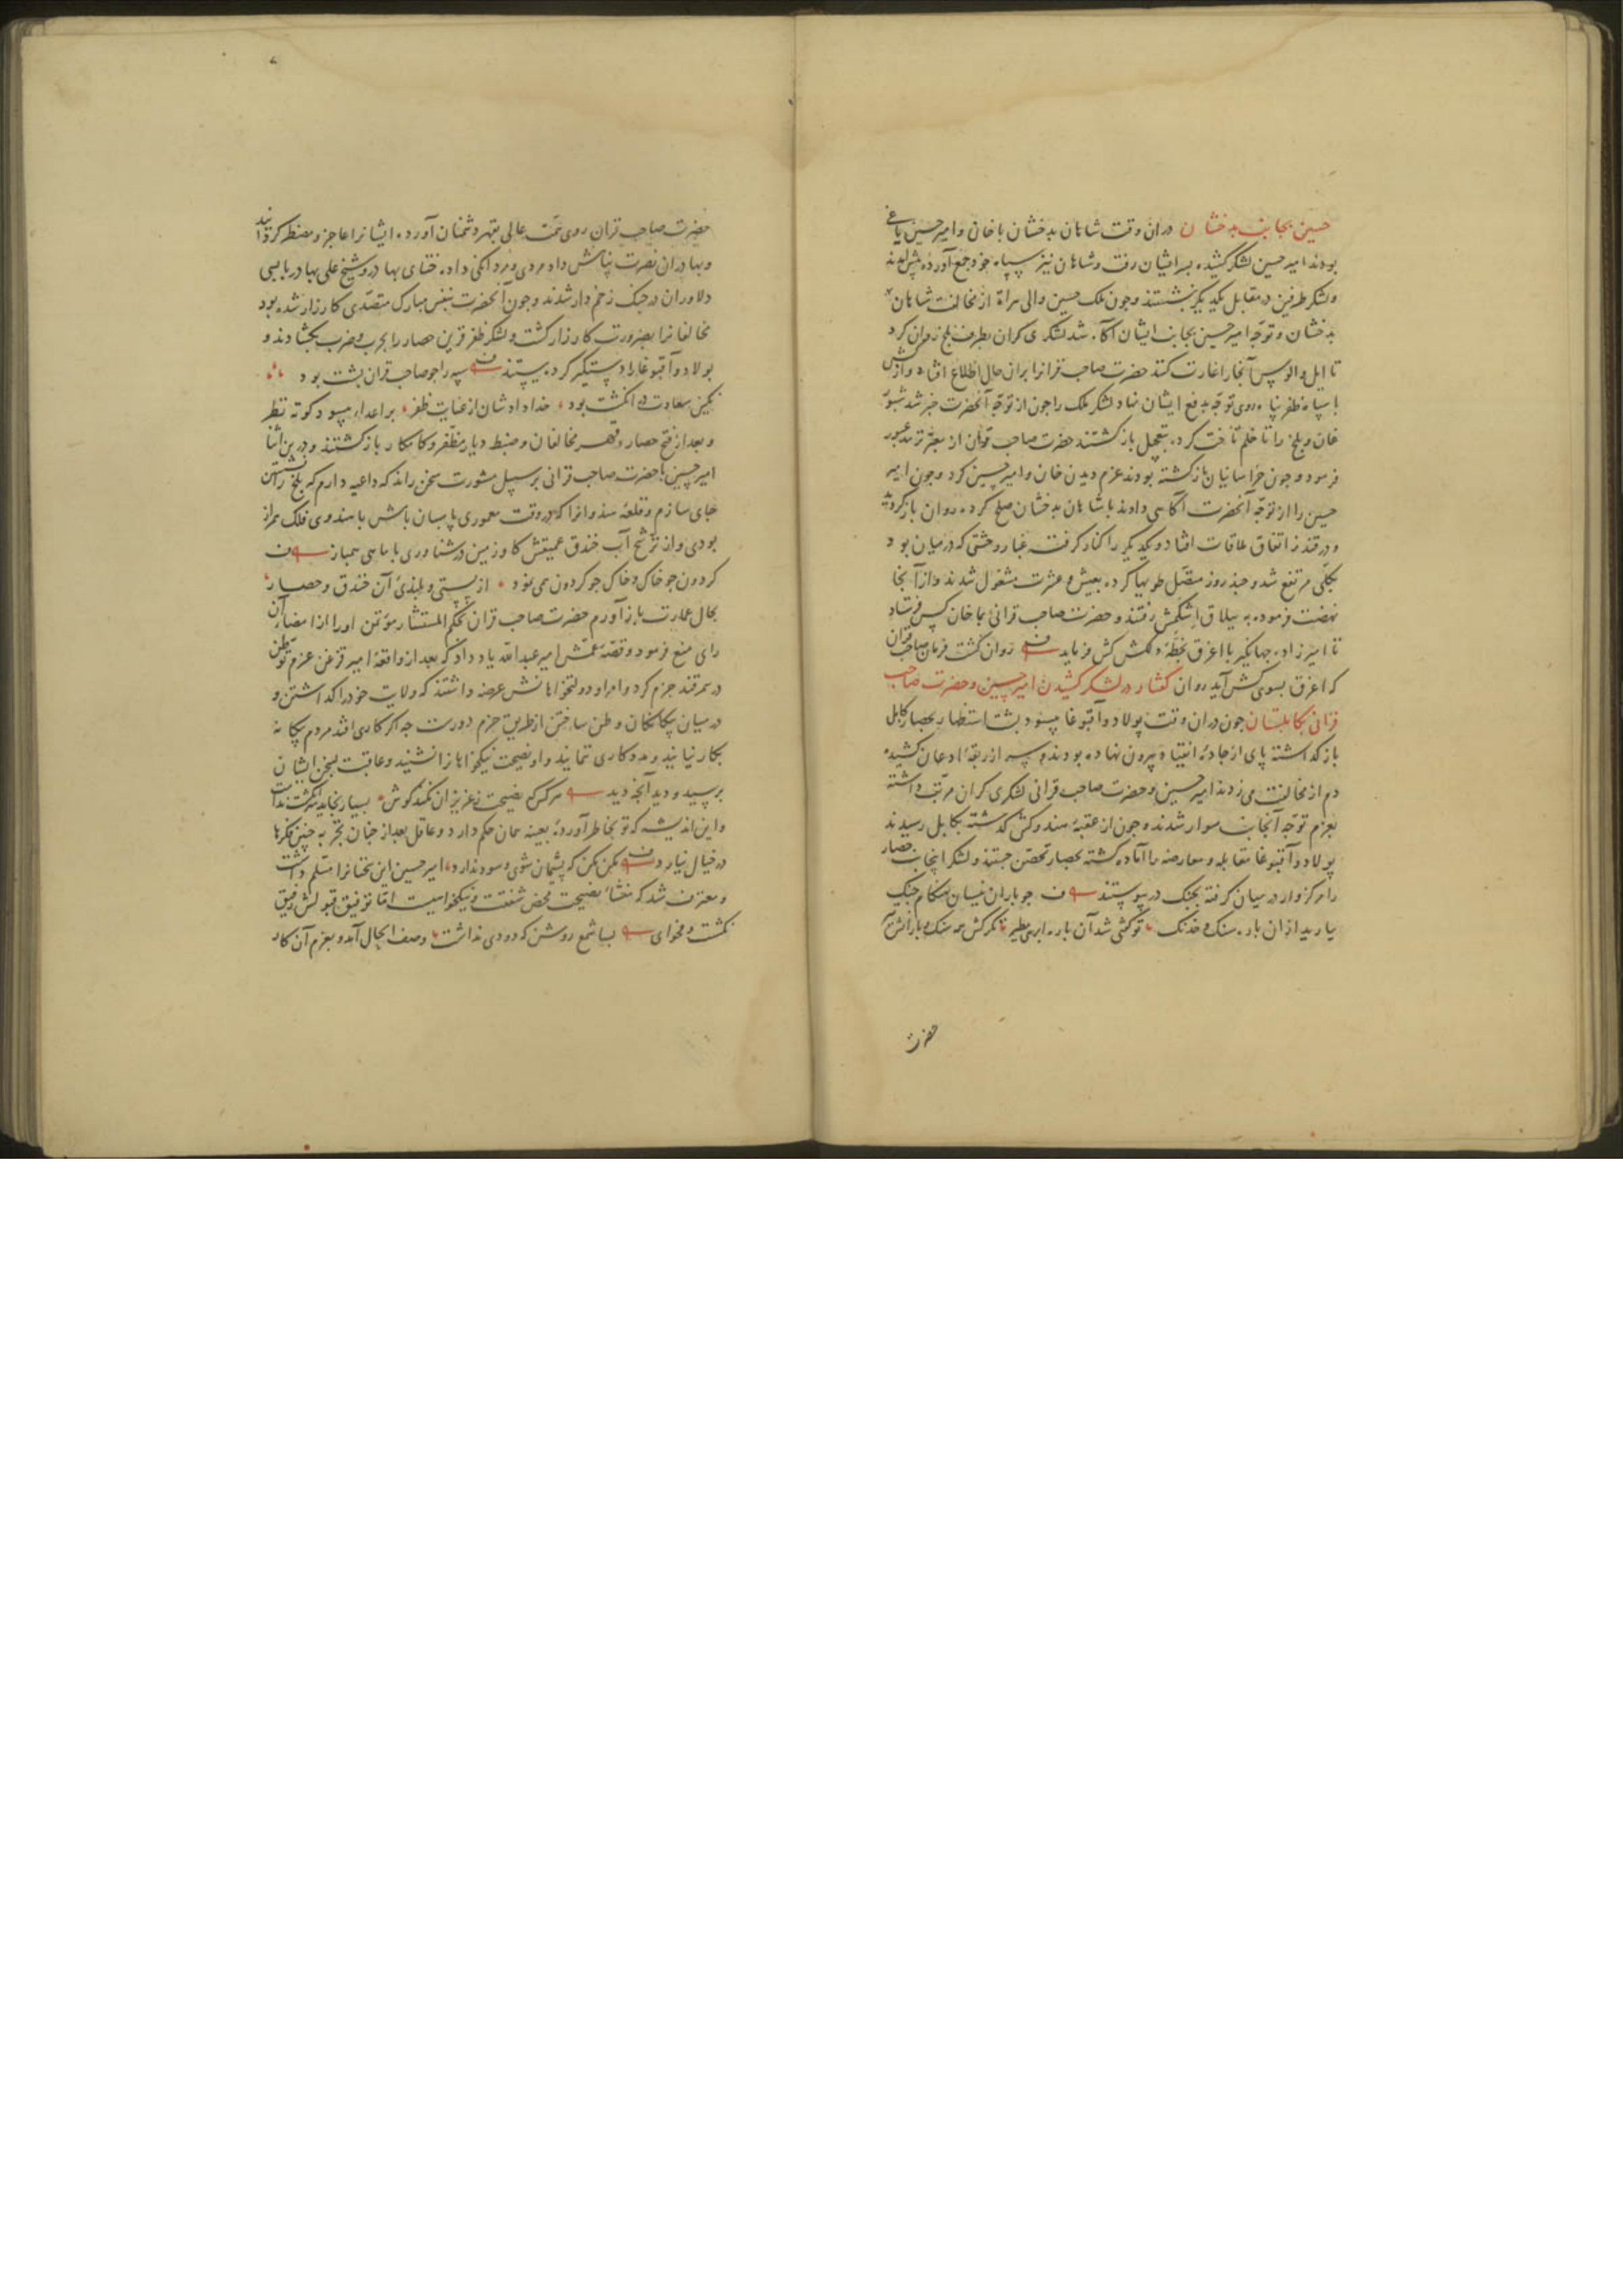 حسین بجانب بدخشان دران وقت شاهان بدخشان با خان و امیر حسین یاغی
بودند امیر حسین لشکر کشیده بسر ایشان رفت و شاهان نیز سپاه خود جمع آورده پیش آمدند
و لشکر طرفین در مقابل یکدیگر بنشستند و چون ملک حسین والی هراة از مخالفت شاهان
بدخشان و توجه امیر حسین بجانب ایشان آکاه شد لشکری کران بطرف بلخ روان کرد
تا ایل و الوس آنجا را غارت کنند حضرت صاحب قرانرا بران حال اطلاع افتاد و از کش
با سپاه ظفر پناه روی توجه بدفع ایشان نهاد لشکر ملک را چون از توجه آنحضرت خبر شد شبو
غان و بلخ را تا خلم تاخت کرده بتعجیل بازکشتند حضرت صاحب قران از معبر ترمد عبور
فرمود و چون خراسانیان بازکشته بودند عزم دیدن خان و امیر حسین کرد و چون امیر
حسین را از توجه آنحضرت آکاهی دادند با شاهان بدخشان صلح کرده روان بازکردید
و در قندز اتفاق ملاقات افتاد و یکدیگر را کنار کرفته غبار وحشتی که در میان بود
بکلی مرتفع شد و چند روز متصل طویها کرده بعیش و عشرت مشغول شدند و از آنجا
نهضت فرموده به ییلاق اشکمش رفتند و حضرت صاحب قرانی بجا خان کس فرستاد
تا امیرزاده جهانگیر با اغرق بخطه دلکش کش فرماید روان کشت فرمان صاحب قران
که اغرق بسوی کش آید روان کفتار در لشکر کشیدن امیر حسین و حضرت صاحب
قرانی بکابلستان چون دران وقت پولاد و آقبوغا میسود بشت استظهار بحصار کابل
بازکداشته پای از جاده انقیاد بیرون نهاده بودند و سر از ربقه اذعان کشیده
دم از مخالفت می زدند امیر حسین و حضرت صاحب قرانی لشکری کران مرتب داشته
بعزم توجه آنجانب سوار شدند و چون از عقبه هندوکش کذشته بکابل رسیدند
پولاد و آقبوغا مقابله و معارضه را آماده کشته بحصار تحصن جستند و لشکر آنجانب حصار
را مرکزوار در میان کرفته بجنک درپیوستند چو باران نیسان بهنکام جنک
ببارید ازان باره سنک و خدنک تو کفتی شد آن باره ابری مطیر تکرکش همه سنک و بارانش تیر
حضرت
حضرت صاحب قران روی همت عالی بقهر دشمنان آورده ایشانرا عاجز و مضطر کردانید
و بهادران نصرت پناهش داد مردی و مردانکی داده ختای بهادر و شیخ علی بهادر با بسی
دلاوران در جنک زخم دار شدند و چون آنحضرت بنفس مبارک متصدی کارزار شده بود
مخالفانرا بضرورت کار زار کشت و لشکر ظفر قرین حصار را بحرب و ضرب بکشادند و
بولاد و آقبوغا را دستکیر کرده ببستند سپه را چو صاحب قران بشت بود
نکین سعادت در انکشت بود خدا داد شان از عنایت ظفر بر اعداء میسود کوته نظر
و بعد از فتح حصار و قهر مخالفان و ضبط دیار مظفر و کامکار بازکشتند و درین اثنا
امیر حسین با حضرت صاحب قرانی بر سبیل مشورت سخن راند که داعیه دارم که بلخ را نشستن
جای سازم و قلعه هندوانرا که در وقت معموری پاسبان بامش با هندوی فلک همراز
بودی و از ترشح آب خندق عمیقش کاو زمین در شناوری با ماهی همباز
کردون چو خاک و خاک چو کردون همی نمود از پستی و بلندی آن خندق و حصار
بحال عمارت باز آورم حضرت صاحب قران بحکم المستشار مؤتمن او را از امضاء آن
رای منع فرمود و قصه عمش امیر عبد الله یاد داد که بعد از واقعه امیر قزغن عزم توطن
در سمرقند جزم کرد و امراء و دولتخواهانش عرضه داشتند که ولایت خود را کذاشتن و
در میان بیکانکان وطن ساختن از طریق حزم دورست چه اکر کاری افتد مردم بیکانه
بکار نیایند و مددکاری ننمایند و او نصیحت نیکخواهانرا نشنید و عاقبت بسخن ایشان
برسید و دید آنچه دید هر کس که نصیحت ز عزیزان نکند کوش بسیار بخاید سر انکشت ندامت
و این اندیشه که تو بخاطر آورده بعینه همان حکم دارد و عاقل بعد از چنان تجربه چنین فکرها
در خیال نیارد مکن مکن که پشیمان شوی و سود ندارد امیر حسین این سخنانرا مسلم داشت
و معترف شد که منشاء نصیحت محض شفقت و نیکخواهیست اما توفیق قبولش رفیق
نکشت و فحوای بسا شمع روشن که دودی نداشت وصف الحال آمد و بعزم آن کار